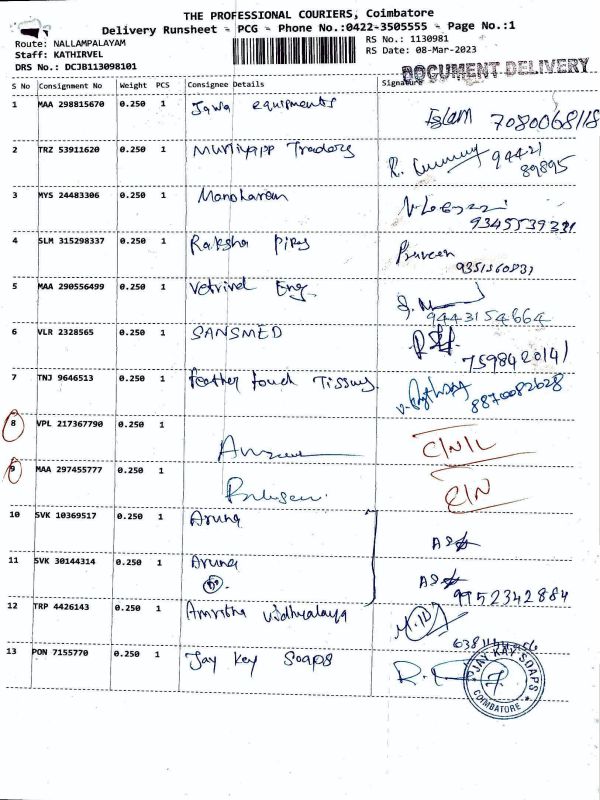 THE PROFESSIONAL COURIERS, Coimbatore
Delivery Runsheet - PCG - Phone No.:0422-3505555 - Page No.:1
Route: NALLAMPALAYAM
RS No.: 1130981
Staff: KATHIRVEL
RS Date: 08-Mar-2023
DRS No.: DCJB113098101
DOCUMENT DELIVERY
S No Consignment No Weight PCS Consignee Details Signature
1 MAA 298815670 0.250 1 Jawa equipments Islam 7080068118
2 TRZ 53911620 0.250 1 Traders 94421
89895
3 MYS 24483306 0.250 1 Manoharan
9345539331
4 SLM 315298337 0.250 1 Raksha Pips Praveen
5 MAA 290556499 0.250 1 Vetrivel Eng.
9443154664
6 VLR 2328565 0.250 1 SANSMED
7598420141
7 TNJ 9646513 0.250 1 Feather touch Tissues
8870082628
8 VPL 217367790 0.250 1 C/N/L
9 MAA 297455777 0.250 1
10 SVK 10369517 0.250 1 Aruna
11 SVK 30144314 0.250 1 Aruna
9952342884
12 TRP 4426143 0.250 1 Amritha Vidhyalaya
13 PON 7155770 0.250 1 Jay Key Soaps
JAY KAY SOAPS
COIMBATORE